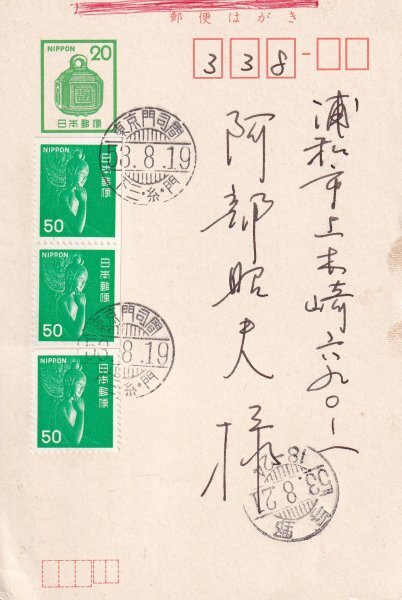 郵便はがき
338
NIPPON 20
日本郵便
浦和市上木崎六九〇ー
阿部昭夫様
NIPPON
日本郵便
50
NIPPON
日本郵便
50
NIPPON
日本郵便
50
東京門司間
53.8.19
東京門司間
8.19
53.8.21